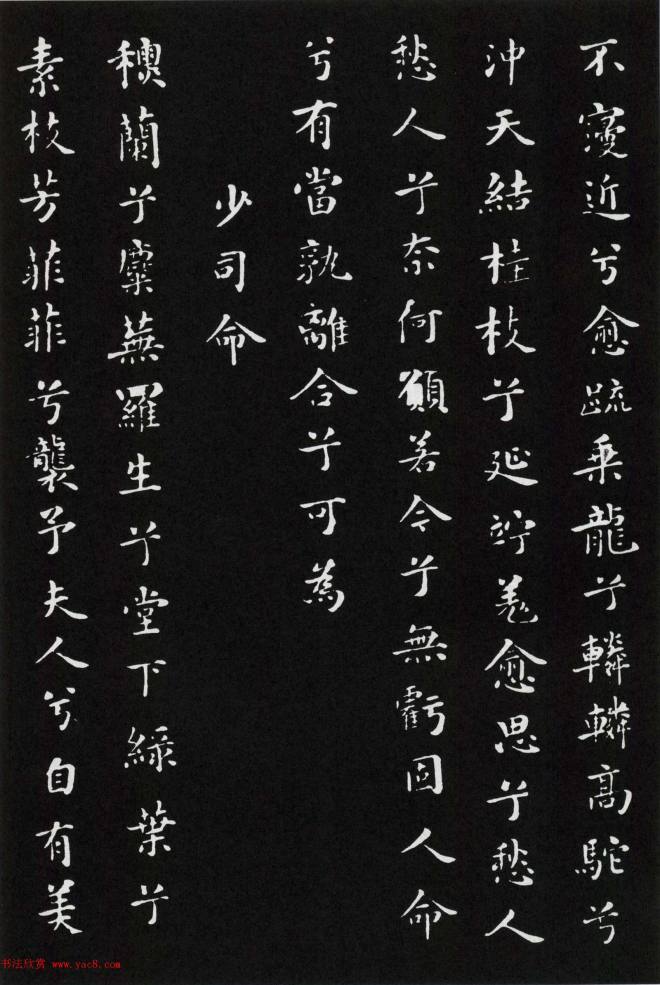 不寖近兮愈疏乘龍兮轔轔高駝兮
沖天結桂枝兮延竚羌愈思兮愁人
愁人兮奈何願若今兮無虧固人命
兮有當孰離合兮可為
少司命
穠蘭兮麋蕪羅生兮堂下綠葉兮
素枝芳菲菲兮襲予夫人兮自有美
书法欣赏 www.yac8.com